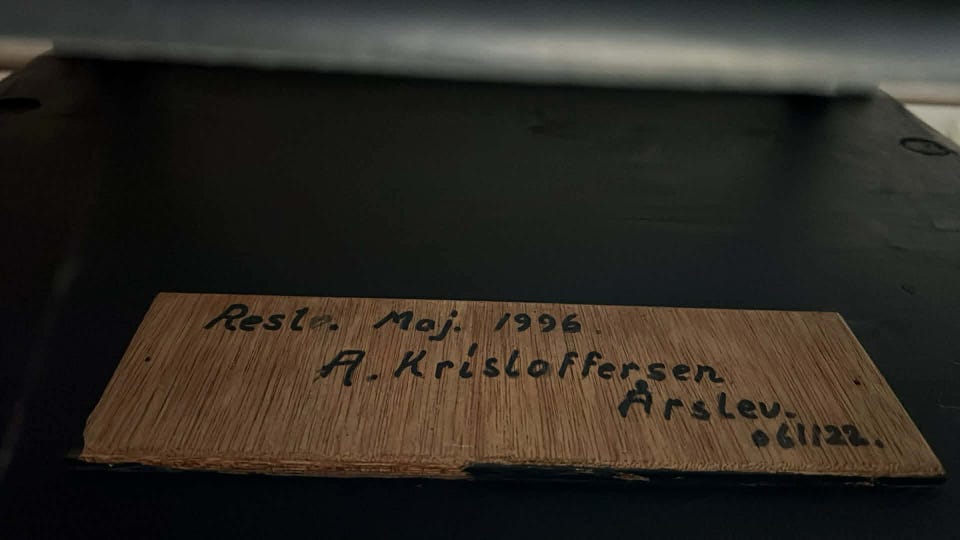 Rest. Maj. 1996.
A. Kristoffersen
Årslev.
061122.